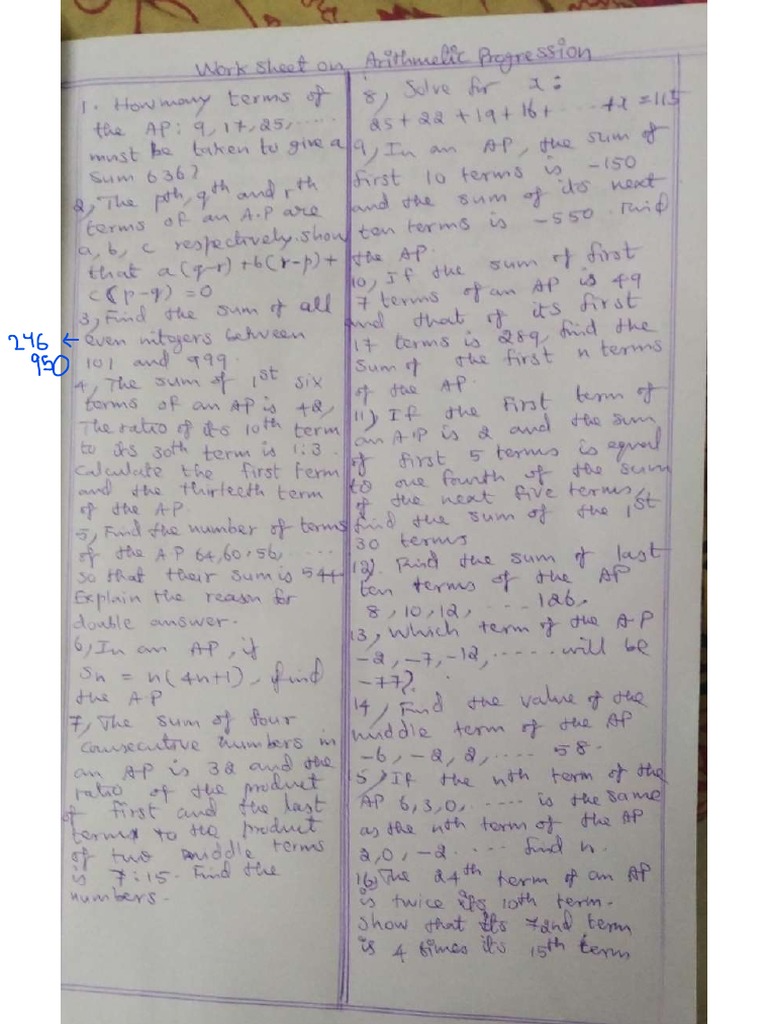 Work Sheet on Arithmetic Progression
1. How many terms of
the AP: 9, 17, 25, .....
must be taken to give a
Sum 636?
2, The pth, qth and rth
terms of an A.P are
a, b, c respectively. show
that a(q-r) + b(r-p) +
c(p-q) = 0
3, Find the sum of all
even nitegers between
101 and 999.
246
950
4, The sum of 1st six
terms of an AP is 42,
The ratio of its 10th term
to its 30th term is 1:3.
Calculate the first term
and the thirteeth term
of the AP.
5, Find the number of terms
of the AP 64, 60, 56, .....
so that their sum is 544.
Explain the reason for
double answer.
6, In an AP, if
Sn = n(4n+1), find
the AP
7, The sum of four
consecutive numbers in
an AP is 32 and the
ratio of the product
of first and the last
terms to the product
of two middle terms
is 7:15. Find the
numbers.
8, Solve for x:
25 + 22 + 19 + 16 + ..... + x = 115
9, In an AP, the sum of
first 10 terms is -150
and the sum of its next
ten terms is -550. Find
the AP.
10, If the sum of first
7 terms of an AP is 49
and that of its first
17 terms is 289, find the
sum of the first n terms
of the AP.
11) If the First term of
an AP is 2 and the sum
of first 5 terms is equal
to one fourth of the sum
of the next five terms,
find the sum of the 1st
30 terms
12) Find the sum of last
ten terms of the AP
8, 10, 12, ..... 126.
13, Which term of the AP
-2, -7, -12, ..... will be
-77?
14, Find the value of the
middle term of the AP
-6, -2, 2, .... 58.
15, If the nth term of the
AP 6, 3, 0, ..... is the same
as the nth term of the AP
2, 0, -2 .... find n.
16) The 24th term of an AP
is twice its 10th term.
Show that its 72nd term
is 4 times its 15th term